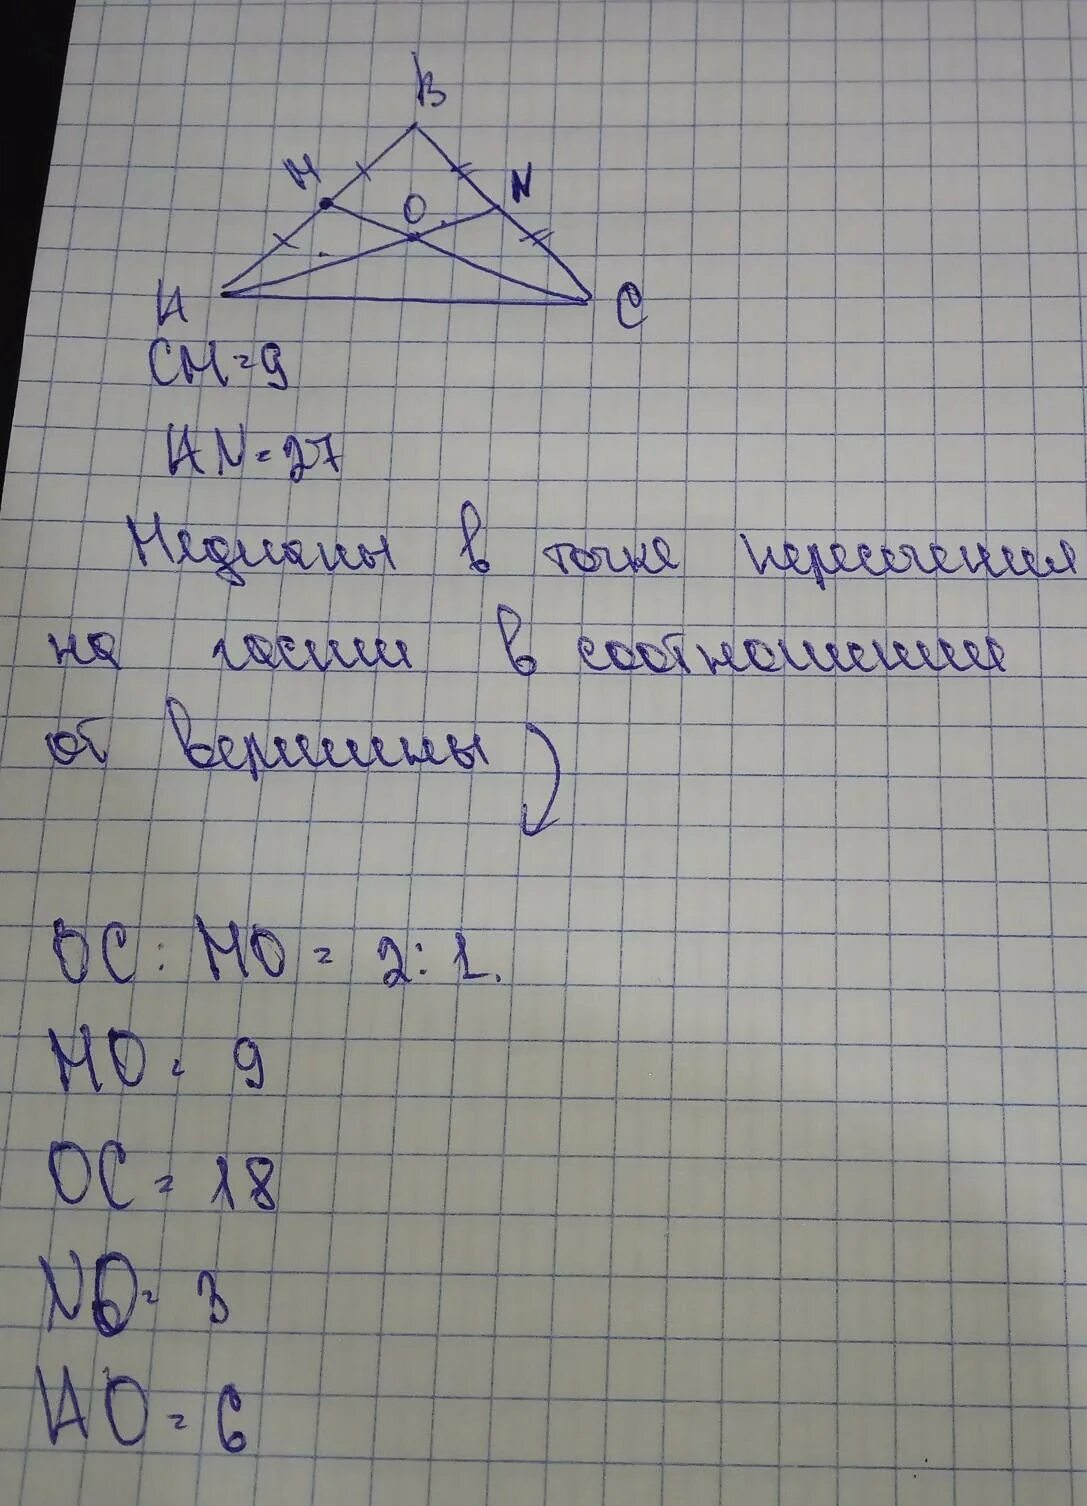 B
M
N
O
A
C
CM=9
AN=27
Медианы в точке пересечения
на части в соотношении
от вершины
OC : MO = 2:1.
MO = 9
OC = 18
NO = 3
AO = 6